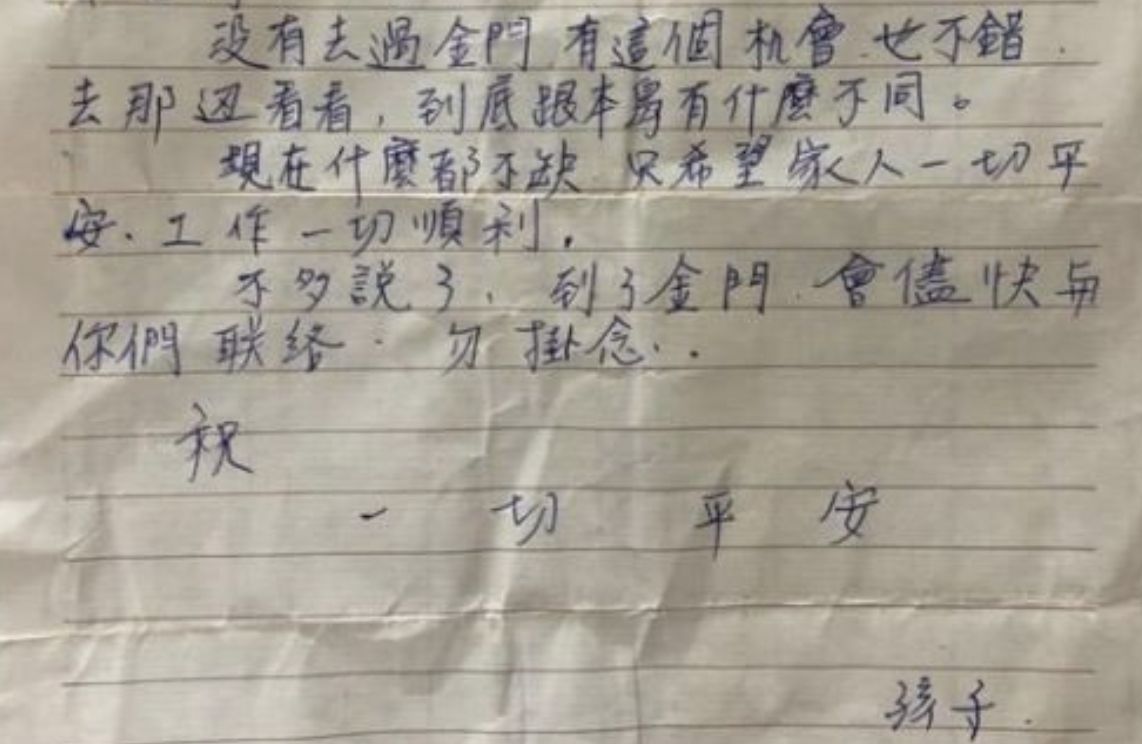 没有去過金門 有這個机會 也不錯.
去那边看看,到底跟本島有什麼不同。
現在什麼都不缺 只希望家人一切平
安.工作一切順利.
不多說了.到了金門.會儘快与
你們联络.勿掛念..
祝
一切平安
孫子.